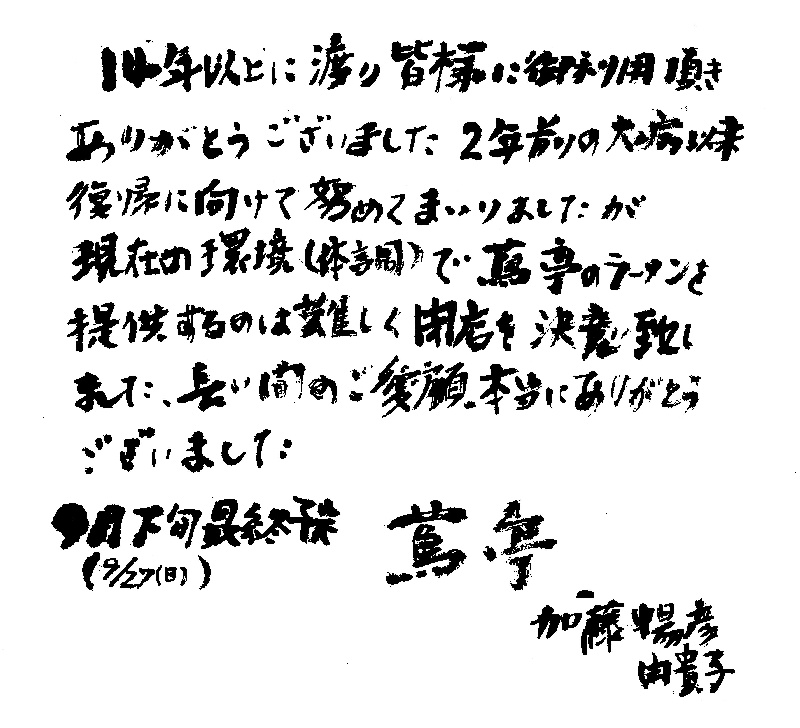 14年以上に渡り皆様に御利用頂き
ありがとうございました 2年前の大病以来
復帰に向けて努めてまいりましたが
現在の環境(体調)で蔦亭のラーメンを
提供するのは難しく閉店を決意致し
ました、長い間のご愛顧、本当にありがとう
ございました
9月下旬最終予定
(9/27(日))
蔦亭
加藤暢彦
由貴子